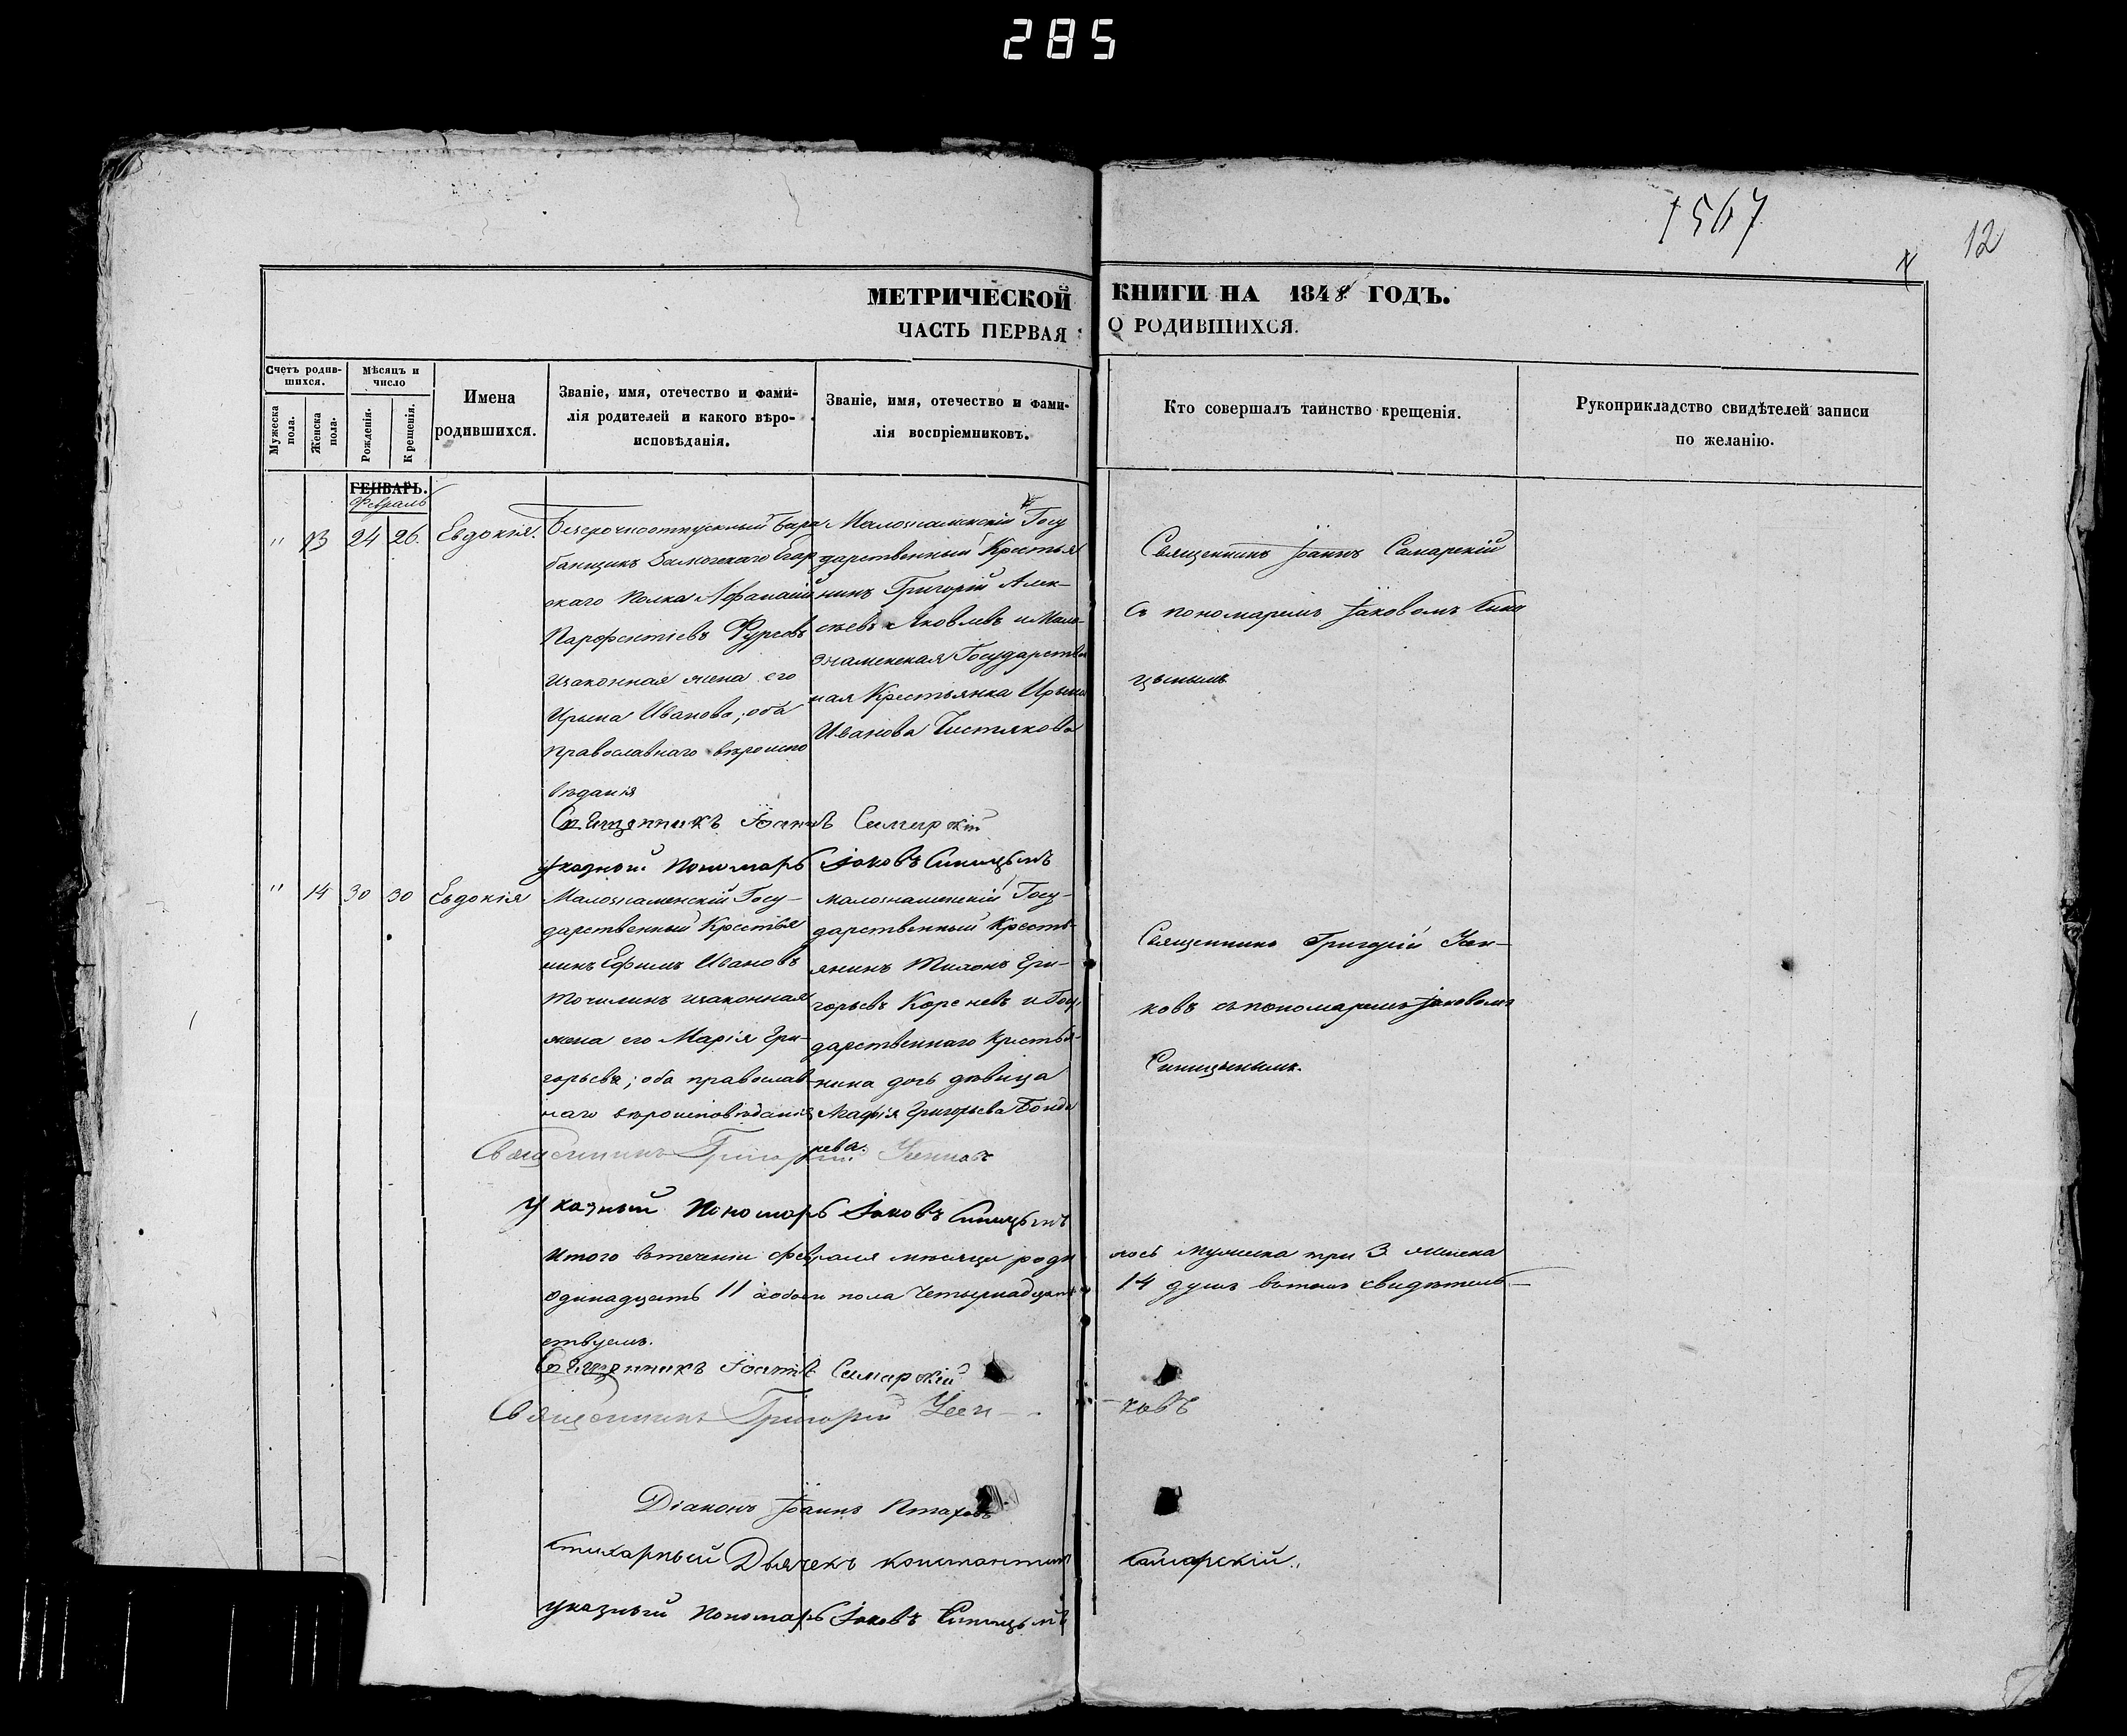 285
1567
12
МЕТРИЧЕСКОЙ КНИГИ НА 1848 ГОДЪ.
ЧАСТЬ ПЕРВАЯ: О РОДИВШИХСЯ.
Счетъ родив-
шихся.
Мужеска
пола.
Женска
пола.
Мѣсяцъ и
число
Рожденія.
Крещенія.
Имена
родившихся.
Званіе, имя, отечество и фами-
лія родителей и какого вѣро-
исповѣданія.
Званіе, имя, отечество и фами-
лія воспріемниковъ.
Кто совершалъ таинство крещенія.
Рукоприкладство свидѣтелей записи
по желанію.
ГЕНВАРЬ.
Февраль
" 13 24 26. Евдокія.
Безсрочноотпускный бара
банщикъ Замосскаго Егер
скаго Полка Афанасій
Парфентіевъ Фурсовъ
изаконная жена его
Ирина Иванова; оба
православнаго вѣроиспо
вѣданія
Малознаменскій Госу
дарственный Крестья
нинъ Григорій Алек-
сѣевъ Яковлевъ и Мало
знаменская Государствен
ная Крестьянка Ирына
Иванова Чистякова
Священникъ Іоаннъ Самарскій
съ пономаремъ Іаковомъ Сини
цынымъ
Священникъ Іоаннъ Самарскій
указной Пономарь Іаковъ Синицынъ
" 14 30 30 Евдокія
Малознаменскій Госу-
дарственный Крестья
нинъ Ефимъ Ивановъ
Точилинъ изаконная
жена его Марія Гри-
горьева; оба православ
наго вѣроисповѣданія
малознаменскій Госу-
дарственный Кресть-
янинъ Тихонъ Гри-
горьевъ Кореневъ и Госу
дарственнаго Крестья-
нина дочь дѣвица
Марія Григорьева Бонда
рева.
Священникъ Григорій Усен-
ковъ съ пономаремъ Іаковомъ
Синицынымъ.
Священникъ Григорій Усенковъ
указный Пономарь Іаковъ Синицынъ
Итого втеченіи февраля мѣсяца роди лось мужеска три 3 женска
одинадцать 11 а обоего пола четырнадцать 14 душъ вътомъ свидѣтель-
ствуемъ.
Священникъ Іоаннъ Самарскій
Священникъ Григорій Усен- -ковъ
Діаконъ Іоаннъ Птаховъ
стихарный Дьячекъ Константинъ Самарскій.
указный Пономарь Іаковъ Синицынъ